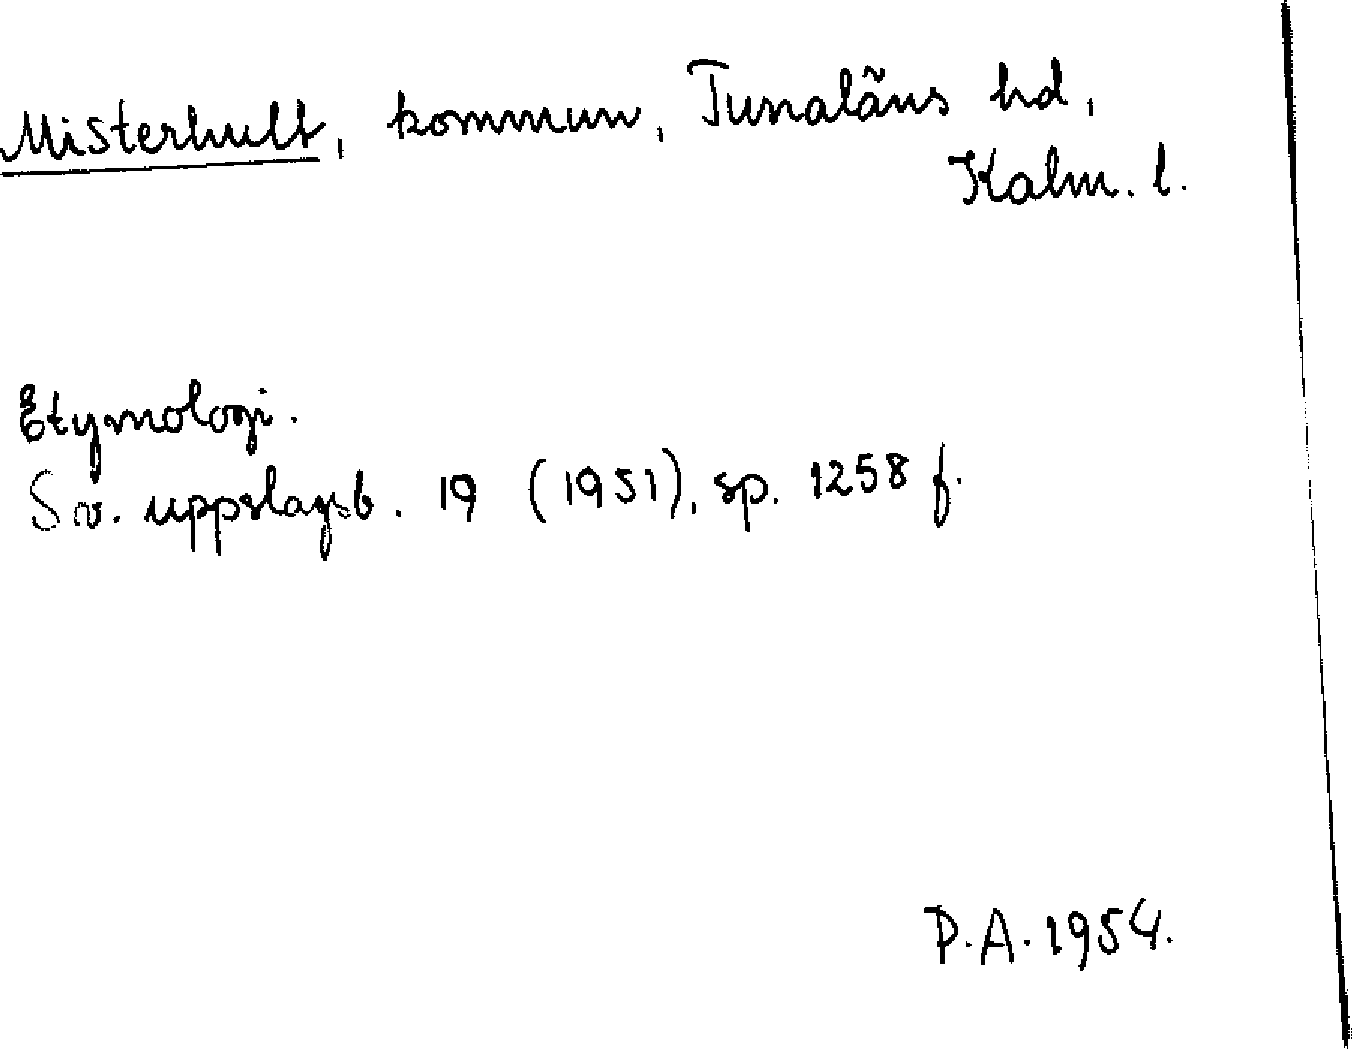 Misterhult, kommun, Tunaläns hd,
Kalm. l.
Etymologi.
Sv. uppslagsb. 19 (1951), sp. 1258 f.
P.A. 1954.